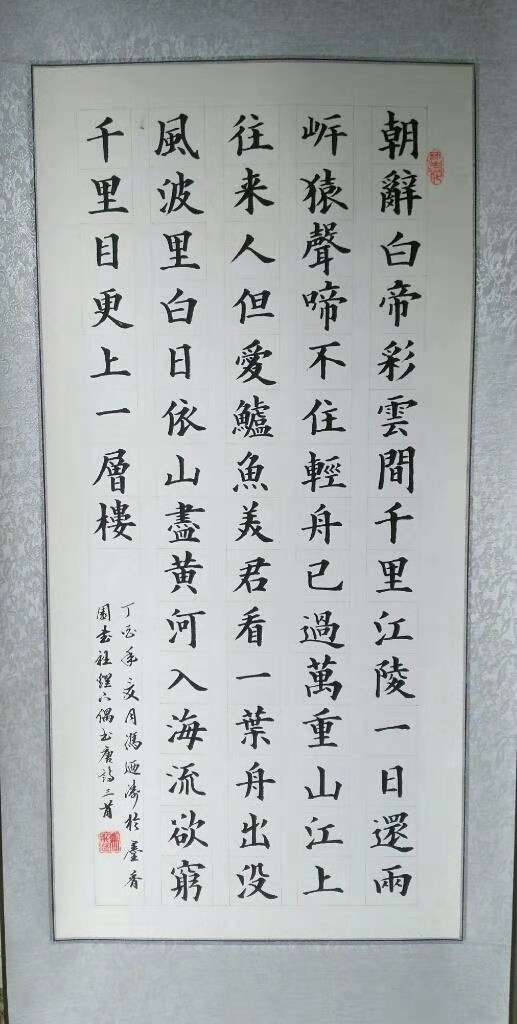 朝辭白帝彩雲間千里江陵一日還兩
岍猿聲啼不住輕舟已過萬重山江上
往来人但愛鱸魚美君看一葉舟出没
風波里白日依山盡黄河入海流欲窮
千里目更上一層樓
丁酉年月馮於墨香
園偶书唐詩三首